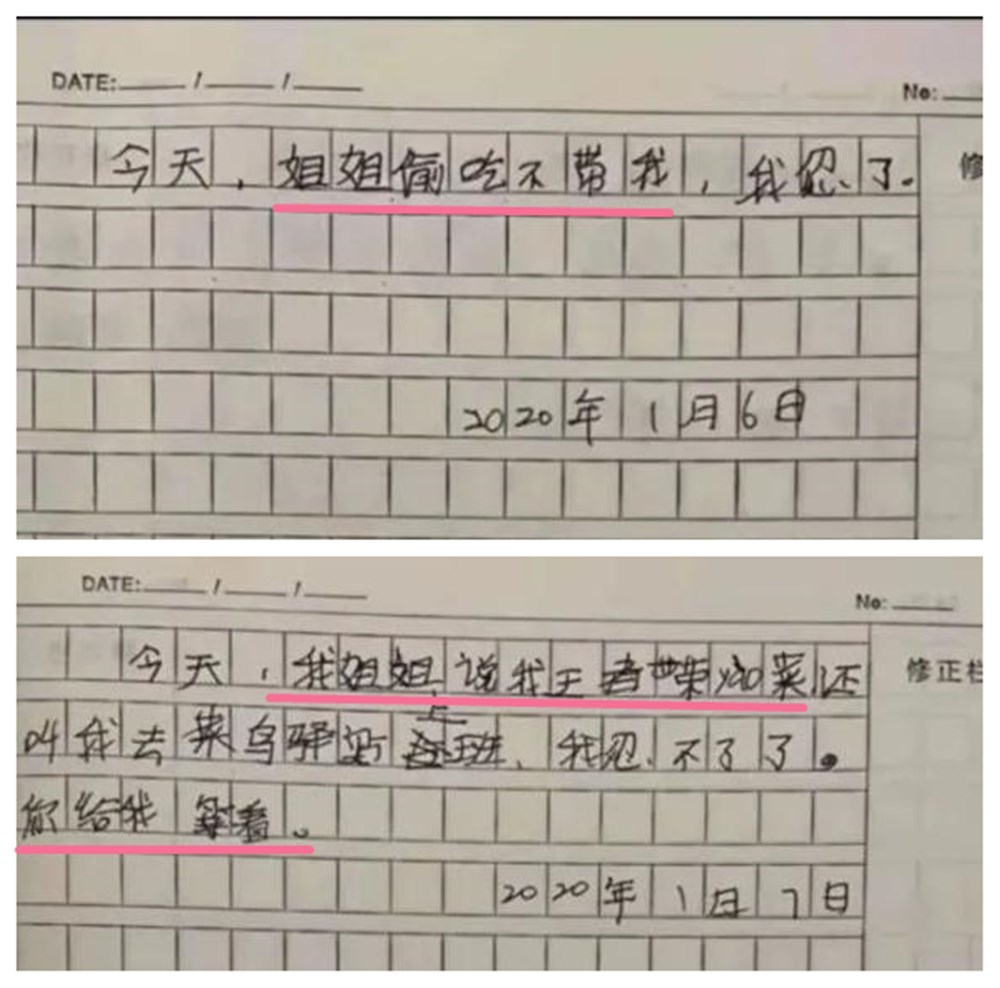 DATE: / /
No:
今天，姐姐偷吃不带我，我忍了。
修
2020年1月6日
DATE: / /
No:
今天，我姐姐说我王者荣耀菜还
修正栏
叫我去菜鸟驿站上班，我忍不了了。
你给我等着。
2020年1月7日